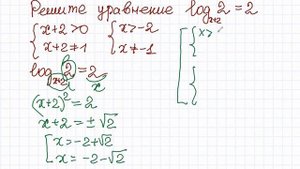 Решите уравнение log_{x+2} 2 = 2
{ x+2>0 { x>-2
{ x+2≠1 { x≠-1
log_{x+2} 2 = 2
x
(x+2)² = 2
x+2 = ±√2
[ x = -2+√2
[ x = -2-√2
[ { x>
{